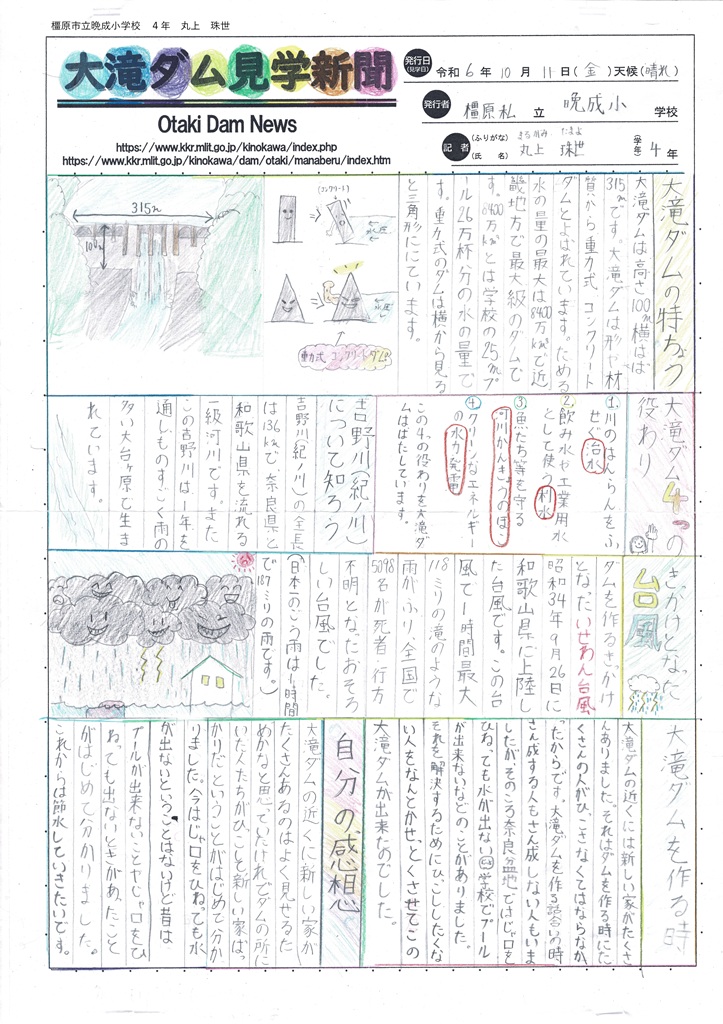 橿原市立晩成小学校 4年 丸上 珠世
大滝ダム見学新聞
Otaki Dam News
https://www.kkr.mlit.go.jp/kinokawa/index.php
https://www.kkr.mlit.go.jp/kinokawa/dam/otaki/manaberu/index.htm
発行日(見学日) 令和6年10月11日(金)天候(晴れ)
発行者 橿原私立 晩成小 学校
記者 (ふりがな) まるがみ たまよ
(氏名) 丸上 珠世 (学年) 4年
大滝ダムの特ちょう
大滝ダムは高さ100m横はば
315mです。大滝ダムは形や材
質から重力式コンクリート
ダムとよばれています。ためる
水の量の最大は8400万㎥で近
畿地方で最大級のダムで
す。8400万㎥とは学校の25mプ
ール26万杯分の水の量で
す。重力式のダムは横から見る
と三角形ににています。
(コンクリート)
水圧
水圧
重力式コンクリートダム
315m
100m
大滝ダム4つの
役わり
1.川のはんらんをふ
せぐ治水
2.飲み水や工業用水
として使う利水
3.魚たち等を守る
河川かんきょうのほご
4.クリーンなエネルギー
の水力発電
この4つの役わりを大滝ダ
ムははたしています。
吉野川(紀ノ川)
について知ろう
吉野川(紀ノ川)の全長
は136㎞で、奈良県と
和歌山県を流れる
一級河川です。また
この吉野川は一年を
通しものすごく雨の
多い大台ヶ原で生ま
れています。
きかけとなった
台風
ダムを作るきっかけ
となったいせわん台風
昭和34年9月26日に
和歌山県に上陸し
た台風です。この台
風で1時間最大
118ミリの滝のような
雨がふり、全国で
5098名が死者・行方
不明となったおそろ
しい台風でした。
(日本一のごう雨は1時間
で187ミリの雨です。)
大滝ダムを作る時
大滝ダムの近くには新しい家がたくさ
んありました。それはダムを作る時にた
くさんの人がひっこさなくてはならなか
ったからです。大滝ダムを作る話合いの時
さん成する人もさん成しない人もいま
したがそのころ奈良盆地ではじゃ口を
ひねっても水が出ない学校でプール
が出来ないなどのことがありました。
それを解決するためにひっこししたくな
い人をなんとかせっとくさせてこの
大滝ダムが出来たのでした。
自分の感想
大滝ダムの近くに新しい家が
たくさんあるのはよく見せるた
めかなと思っていたけれどダムの所に
いた人たちがひっこと新しい家ばっ
かりだということがはじめて分か
りました。今はじゃ口をひねっても水
が出ないということはないけど昔は
プールが出来ないことやじゃ口をひ
ねっても出ないときがあったこと
がはじめて分かりました。
これからは節水していきたいです。